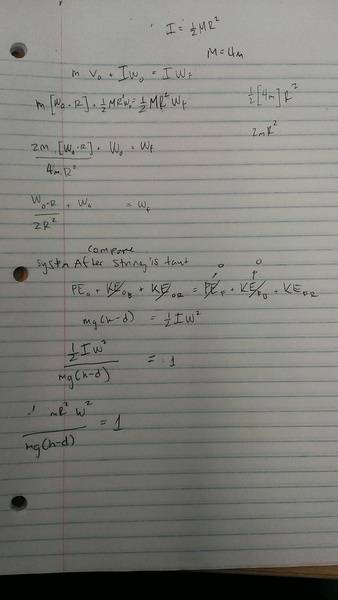 I = ½MR²
M = 4m
m V₀ + I W₀ = I W_f
m [W₀·R] + ½MR²W₀ = ½MR² W_f
½[4m]R²
2mR²
2m·[W₀·R] + W₀ = W_f
4m R²
W₀·R + W₀ = W_f
2R²
Compare
System After String is taut
PE₀ + KE₀B + KE₀R = PE_F + KE_FB + KE_FR
0 0
mg(h-d) = ½Iω²
½Iω² = 1
mg(h-d)
mR² W² = 1
mg(h-d)